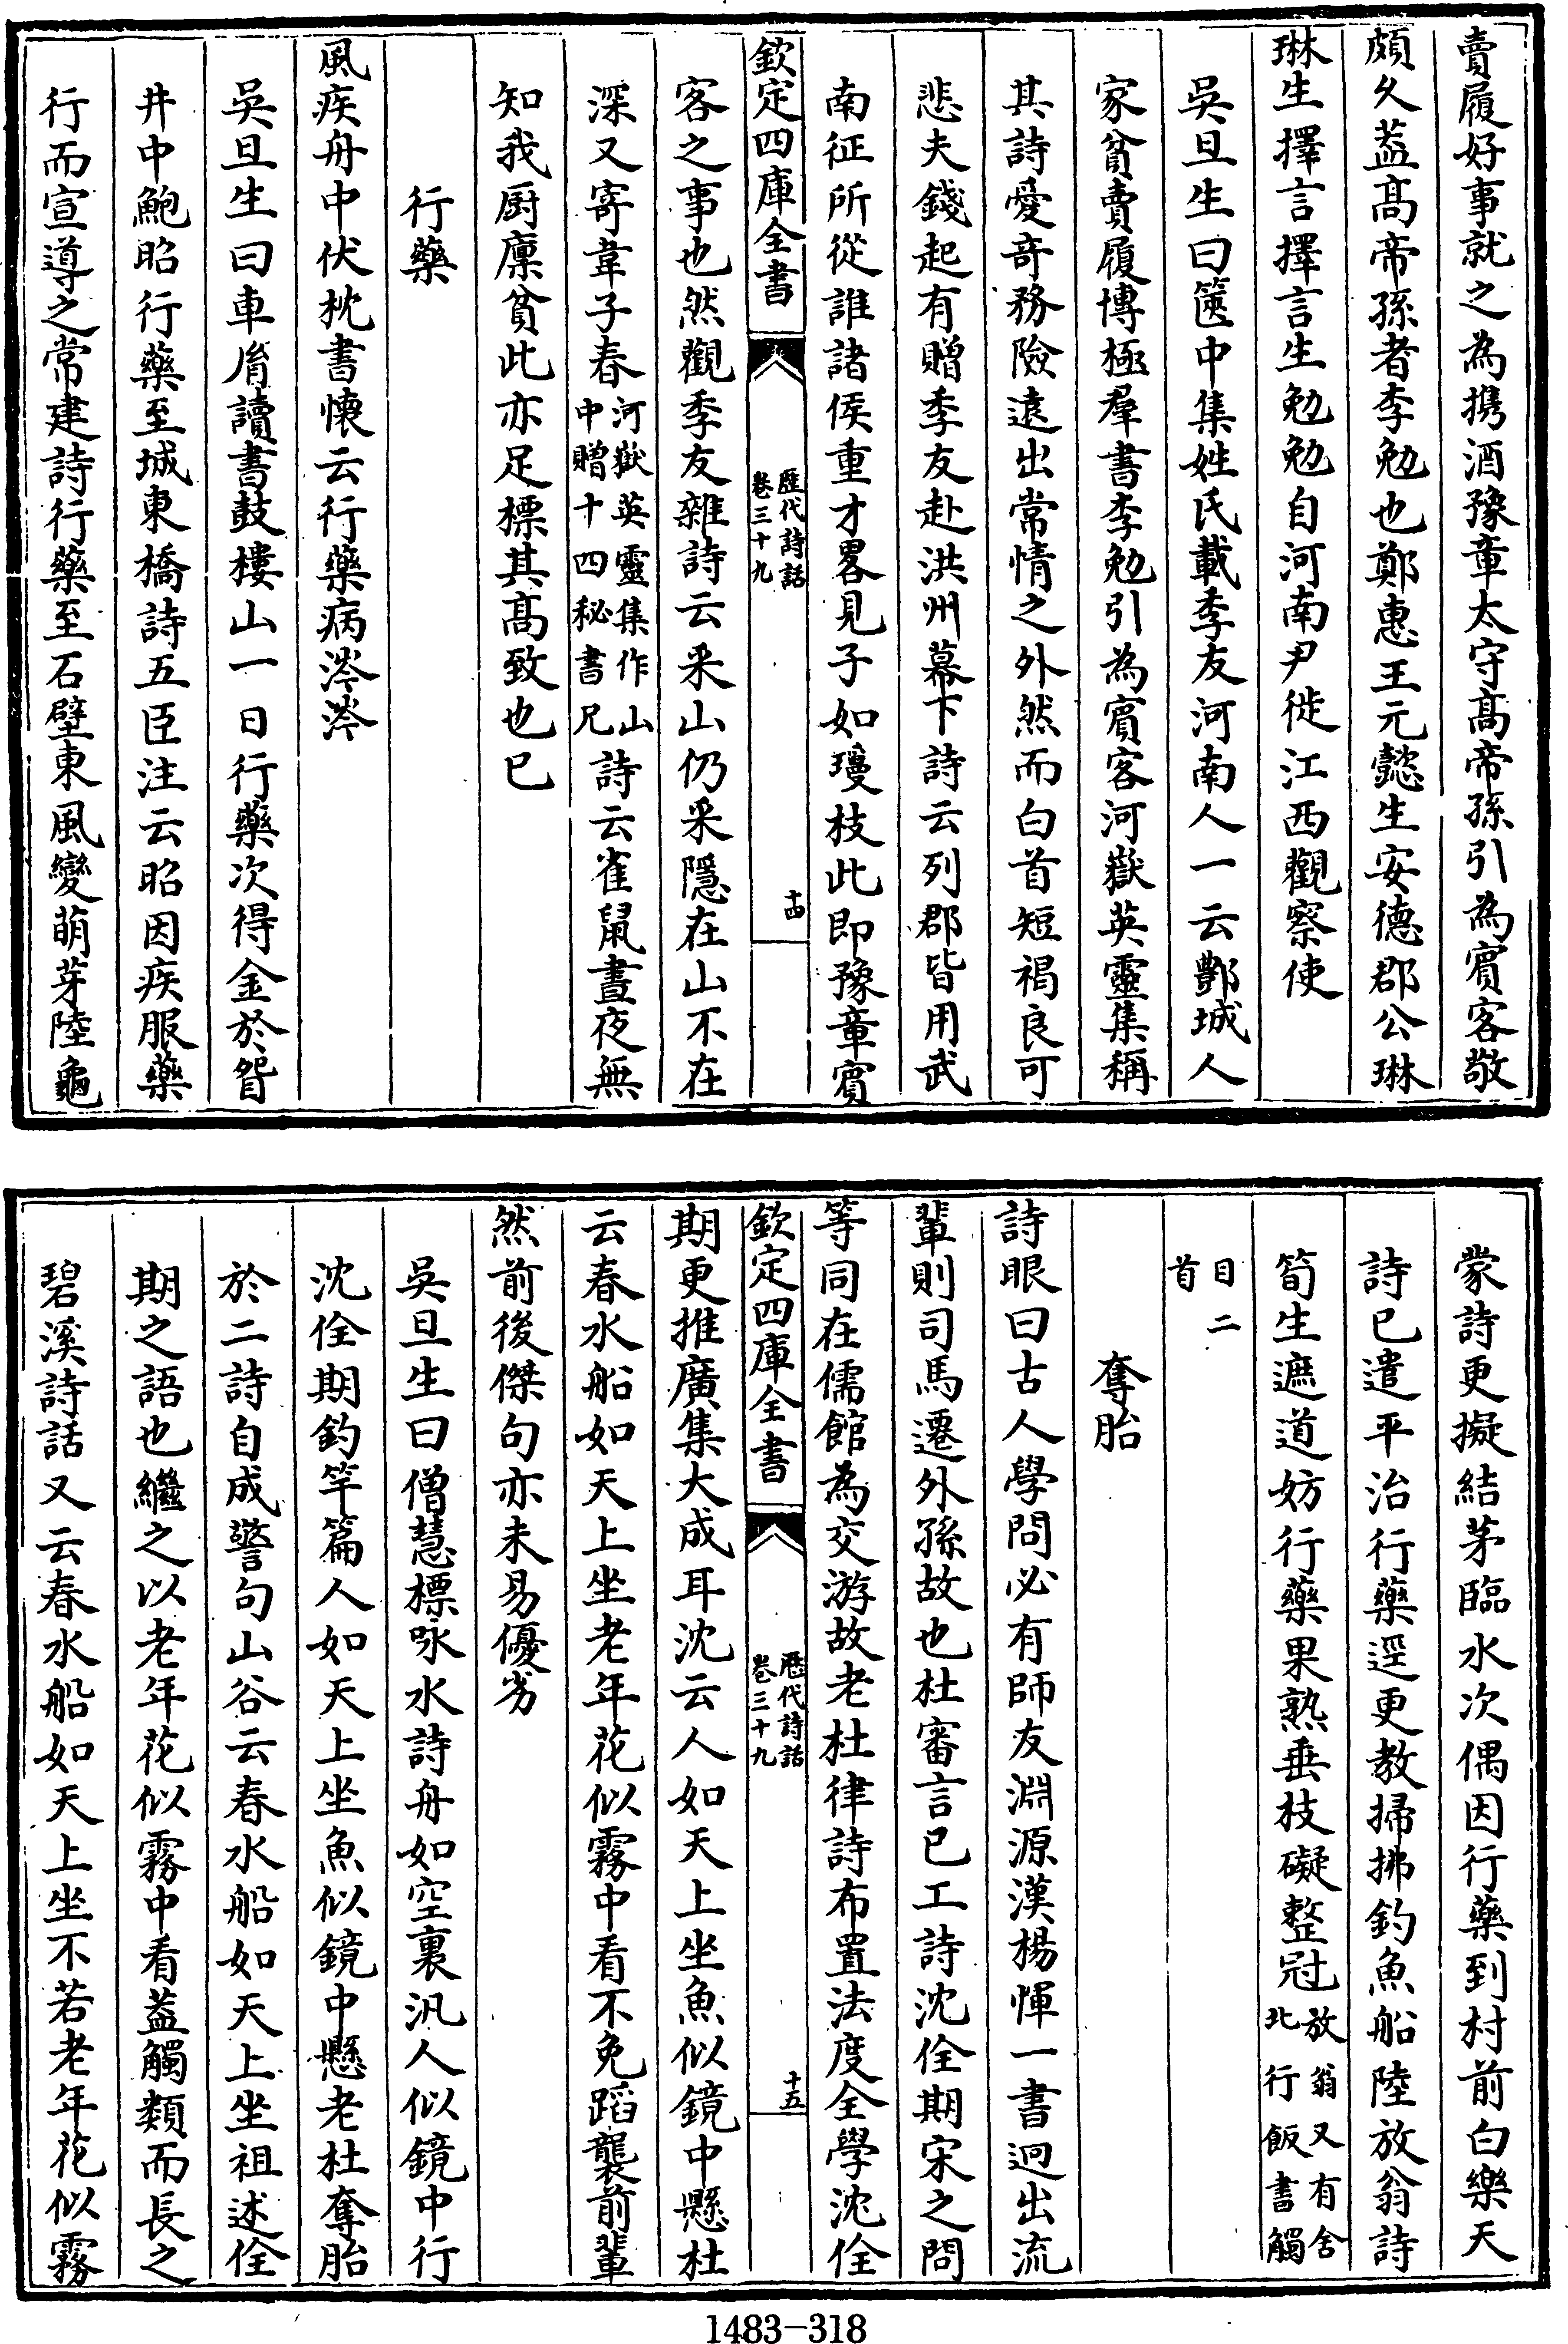 賣履好事就之為携酒豫章太守髙帝孫引為賔客敬
頗久葢髙帝孫者李勉也鄭惠王元懿生安德郡公琳
琳生擇言擇言生勉勉自河南尹徙江西觀察使
吳旦生曰篋中集姓氏載季友河南人一云酆城人
家貧賣履博極羣書李勉引為賔客河嶽英靈集稱
其詩愛竒務險逺出常情之外然而白首短褐良可
悲夫錢起有贈季友赴洪州幕下詩云列郡皆用武
南征所從誰諸侯重才畧見子如瓊枝此即豫章賔
欽定四庫全書
歴代詩話
卷三十九
十四
客之事也然觀季友雜詩云采山仍采隱在山不在
深又寄韋子春河嶽英靈集作山中贈十四秘書兄詩云雀鼠晝夜無
知我厨廩貧此亦足標其髙致也已
行藥
風疾舟中伏枕書懷云行藥病涔涔
吳旦生曰車胤讀書鼓樓山一日行藥次得金於眢
井中鮑昭行藥至城東橋詩五臣注云昭因疾服藥
行而宣導之常建詩行藥至石壁東風變萌芽陸龜
蒙詩更擬結茅臨水次偶因行藥到村前白樂天
詩已遣平治行藥逕更教掃拂釣魚船陸放翁詩
筍生遮道妨行藥果熟垂枝礙整冠放翁又有舍北行飯書觸
目二首
奪胎
詩眼曰古人學問必有師友淵源漢楊惲一書迥出流
輩則司馬遷外孫故也杜審言已工詩沈佺期宋之問
等同在儒館為交游故老杜律詩布置法度全學沈佺
欽定四庫全書
歴代詩話
卷三十九
十五
期更推廣集大成耳沈云人如天上坐魚似鏡中懸杜
云春水船如天上坐老年花似霧中看不免蹈襲前輩
然前後傑句亦未易優劣
吳旦生曰僧慧標咏水詩舟如空裏汎人似鏡中行
沈佺期釣竿篇人如天上坐魚似鏡中懸老杜奪胎
於二詩自成警句山谷云春水船如天上坐祖述佺
期之語也繼之以老年花似霧中看葢觸類而長之
碧溪詩話又云春水船如天上坐不若老年花似霧
1483-318